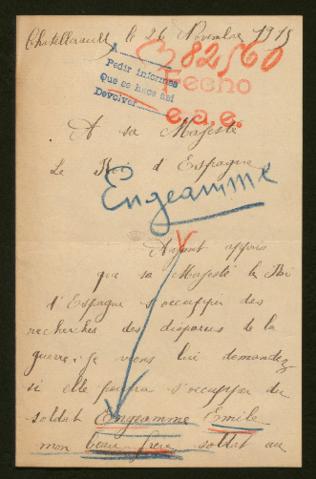 Chatellerault le 26 Novembre 1915
82560
Pedir informes
Que se hace así
Devolver
Fecho
e.a.e.
A sa Majesté
Le Roi d'Espagne
Engeamme
Ayant appris
que sa Majesté le Roi
d'Espagne s'occupper des
recherches des disparus de la
guerre, je viens lui demandez
si elle pourra s'occupper du
soldat Engeamme Emile
mon beau-frère soldat au